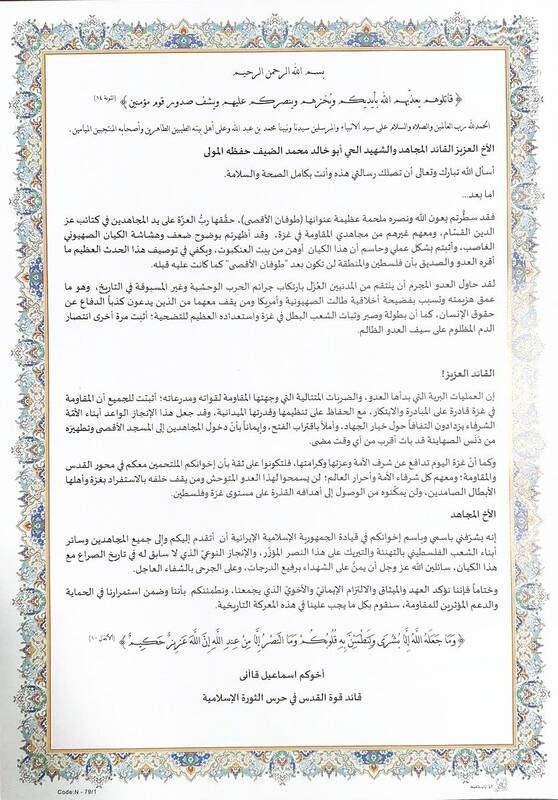 بسم الله الرحمن الرحيم
﴿ قاتلوهم يعذبهم الله بأيديكم ويخزهم وينصركم عليهم ويشف صدور قوم مؤمنين ﴾ (التوبة ١٤)
الحمدلله رب العالمين والصلاة والسلام على سيد الأنبياء والمرسلين سيدنا ونبينا محمد بن عبد الله وعلى أهل بيته الطيبين الطاهرين وأصحابه المنتجبين الميامين.
الأخ العزيز القائد المجاهد والشهيد الحي أبو خالد محمد الضيف حفظه المولى
أسأل الله تبارك وتعالى أن تصلك رسالتي هذه وأنت بكامل الصحة والسلامة.
اما بعد...
فقد سطّرتم بعون الله ونصره ملحمة عظيمة عنوانها (طوفان الأقصى)، حقّقها ربُّ العزّة على يد المجاهدين في كتائب عز
الدين القسّام، ومعهم غيرهم من مجاهدي المقاومة في غزة، وقد أظهرتم بوضوح ضعف وهشاشة الكيان الصهيوني
الغاصب، وأثبتم بشكل عملي وحاسم أن هذا الكيان أوهن من بيت العنكبوت، ويكفي في توصيف هذا الحدث العظيم ما
أقره العدو والصديق بأن فلسطين والمنطقة لن تكون بعد "طوفان الأقصى" كما كانت عليه قبله.
لقد حاول العدو المجرم أن ينتقم من المدنيين العُزّل بارتكاب جرائم الحرب الوحشية وغير المسبوقة في التاريخ، وهو ما
عمق هزيمته وتسبب بفضيحة أخلاقية طالت الصهيونية وأمريكا ومن يقف معهما من الذين يدعون كذباً الدفاع عن
حقوق الإنسان، كما أن بطولة وصبر وثبات الشعب البطل في غزة واستعداده العظيم للتضحية؛ أثبت مرة أخرى انتصار
الدم المظلوم على سيف العدو الظالم.
القائد العزيز!
إن العمليات البرية التي بدأها العدو، والضربات المتتالية التي وجهتها المقاومة لقواته ومدرعاته؛ أثبتت للجميع أن المقاومة
في غزة قادرة على المبادرة والابتكار، مع الحفاظ على تنظيمها وقدرتها الميدانية، وقد جعل هذا الإنجاز الواعد أبناء الأمّة
الشرفاء يزدادون التفافاً حول خيار الجهاد، وأملاً باقتراب الفتح، وإيماناً بأنّ دخول المجاهدين إلى المسجد الأقصى وتطهيره
من دَنَس الصهاينة قد بات أقرب من أي وقت مضى.
وكما أنّ غزة اليوم تدافع عن شرف الأمة وعزتها وكرامتها، فلتكونوا على ثقة بأن إخوانكم الملتحمين معكم في محور القدس
والمقاومة؛ ومعهم كل شرفاء الأمة وأحرار العالم؛ لن يسمحوا لهذا العدو المتوحش ومن يقف خلفه بالاستفراد بغزة وأهلها
الأبطال الصامدين، ولن يمكّنوه من الوصول إلى أهدافه القذرة على مستوى غزة وفلسطين.
الأخ المجاهد
إنه يشرّفني باسمي وباسم إخوانكم في قيادة الجمهورية الإسلامية الإيرانية أن أتقدم إليكم وإلى جميع المجاهدين وسائر
أبناء الشعب الفلسطيني بالتهنئة والتبريك على هذا النصر المؤزّر، والإنجاز النوعيّ الذي لا سابق له في تاريخ الصراع مع
هذا الكيان، سائلين الله عز وجل أن يمنّ على الشهداء برفيع الدرجات، وعلى الجرحى بالشفاء العاجل.
وختاماً فإننا نؤكد العهد والميثاق والالتزام الإيمانيّ والأخويّ الذي يجمعنا، ونطمئنكم بأننا وضمن استمرارنا في الحماية
والدعم المؤثرين للمقاومة، سنقوم بكل ما يجب علينا في هذه المعركة التاريخية.
﴿ وَمَا جَعَلَهُ اللَّهُ إِلَّا بُشْرَى وَلِتَطْمَئِنَّ بِهِ قُلُوبُكُمْ وَمَا النَّصْرُ إِلَّا مِنْ عِندِ اللَّهِ إِنَّ اللَّهَ عَزِيزٌ حَكِيمٌ ﴾ (الأنفال ١٠)
أخوكم اسماعيل قاآنی
قائد قوة القدس في حرس الثورة الإسلامية
Code:N - 79/1